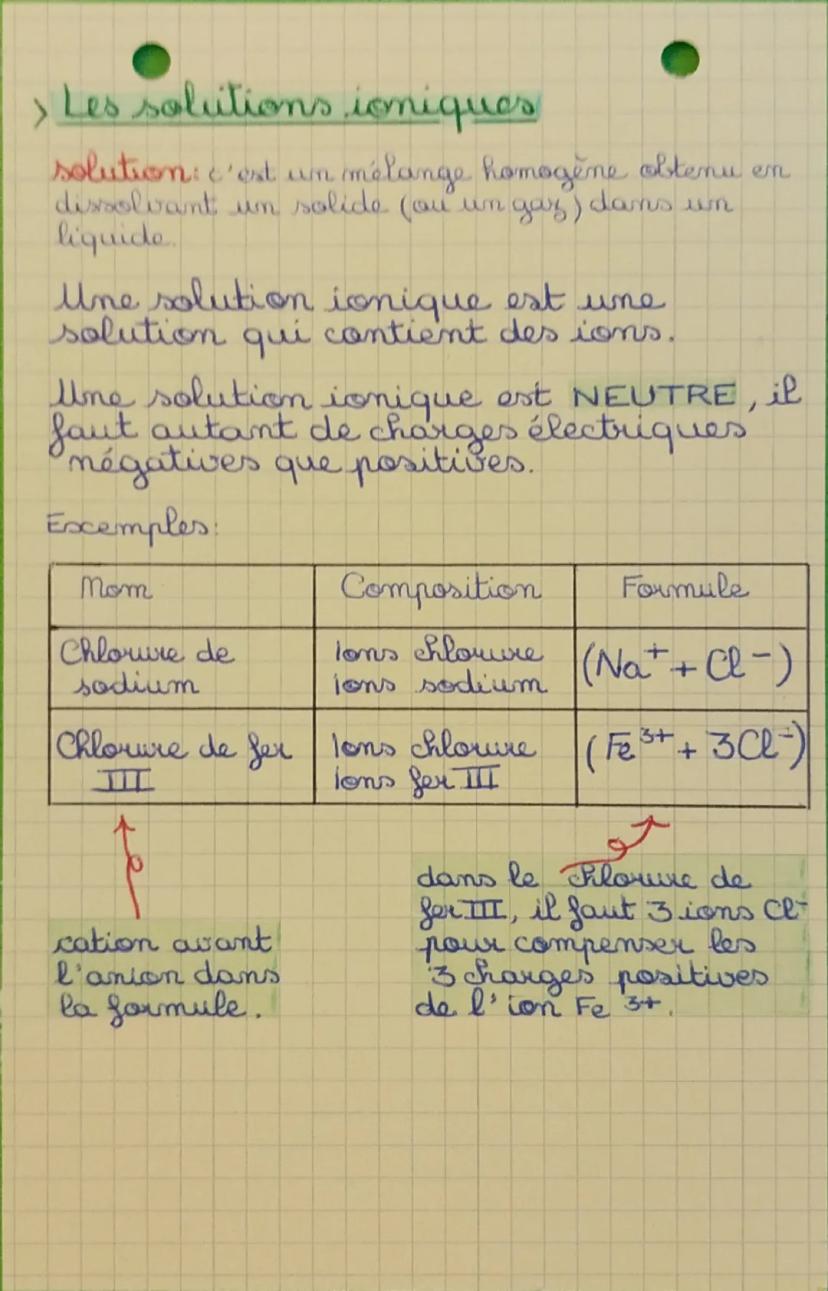 > Les solutions ioniques
solution: c'est un mélange homogène obtenu en
dissolvant un solide (ou un gaz) dans un
liquide.
Une solution ionique est une
solution qui contient des ions.
Une solution ionique est NEUTRE, il
faut autant de charges électriques
négatives que positives.
Exemples:
Nom Composition Formule
Chlorure de Ions chlorure (Na⁺ + Cl⁻)
sodium ions sodium
Chlorure de fer Ions chlorure (Fe³⁺ + 3Cl⁻)
III ions fer III
cation avant
l'anion dans
la formule.
dans le chlorure de
fer III, il faut 3 ions Cl⁻
pour compenser les
3 charges positives
de l'ion Fe ³⁺.